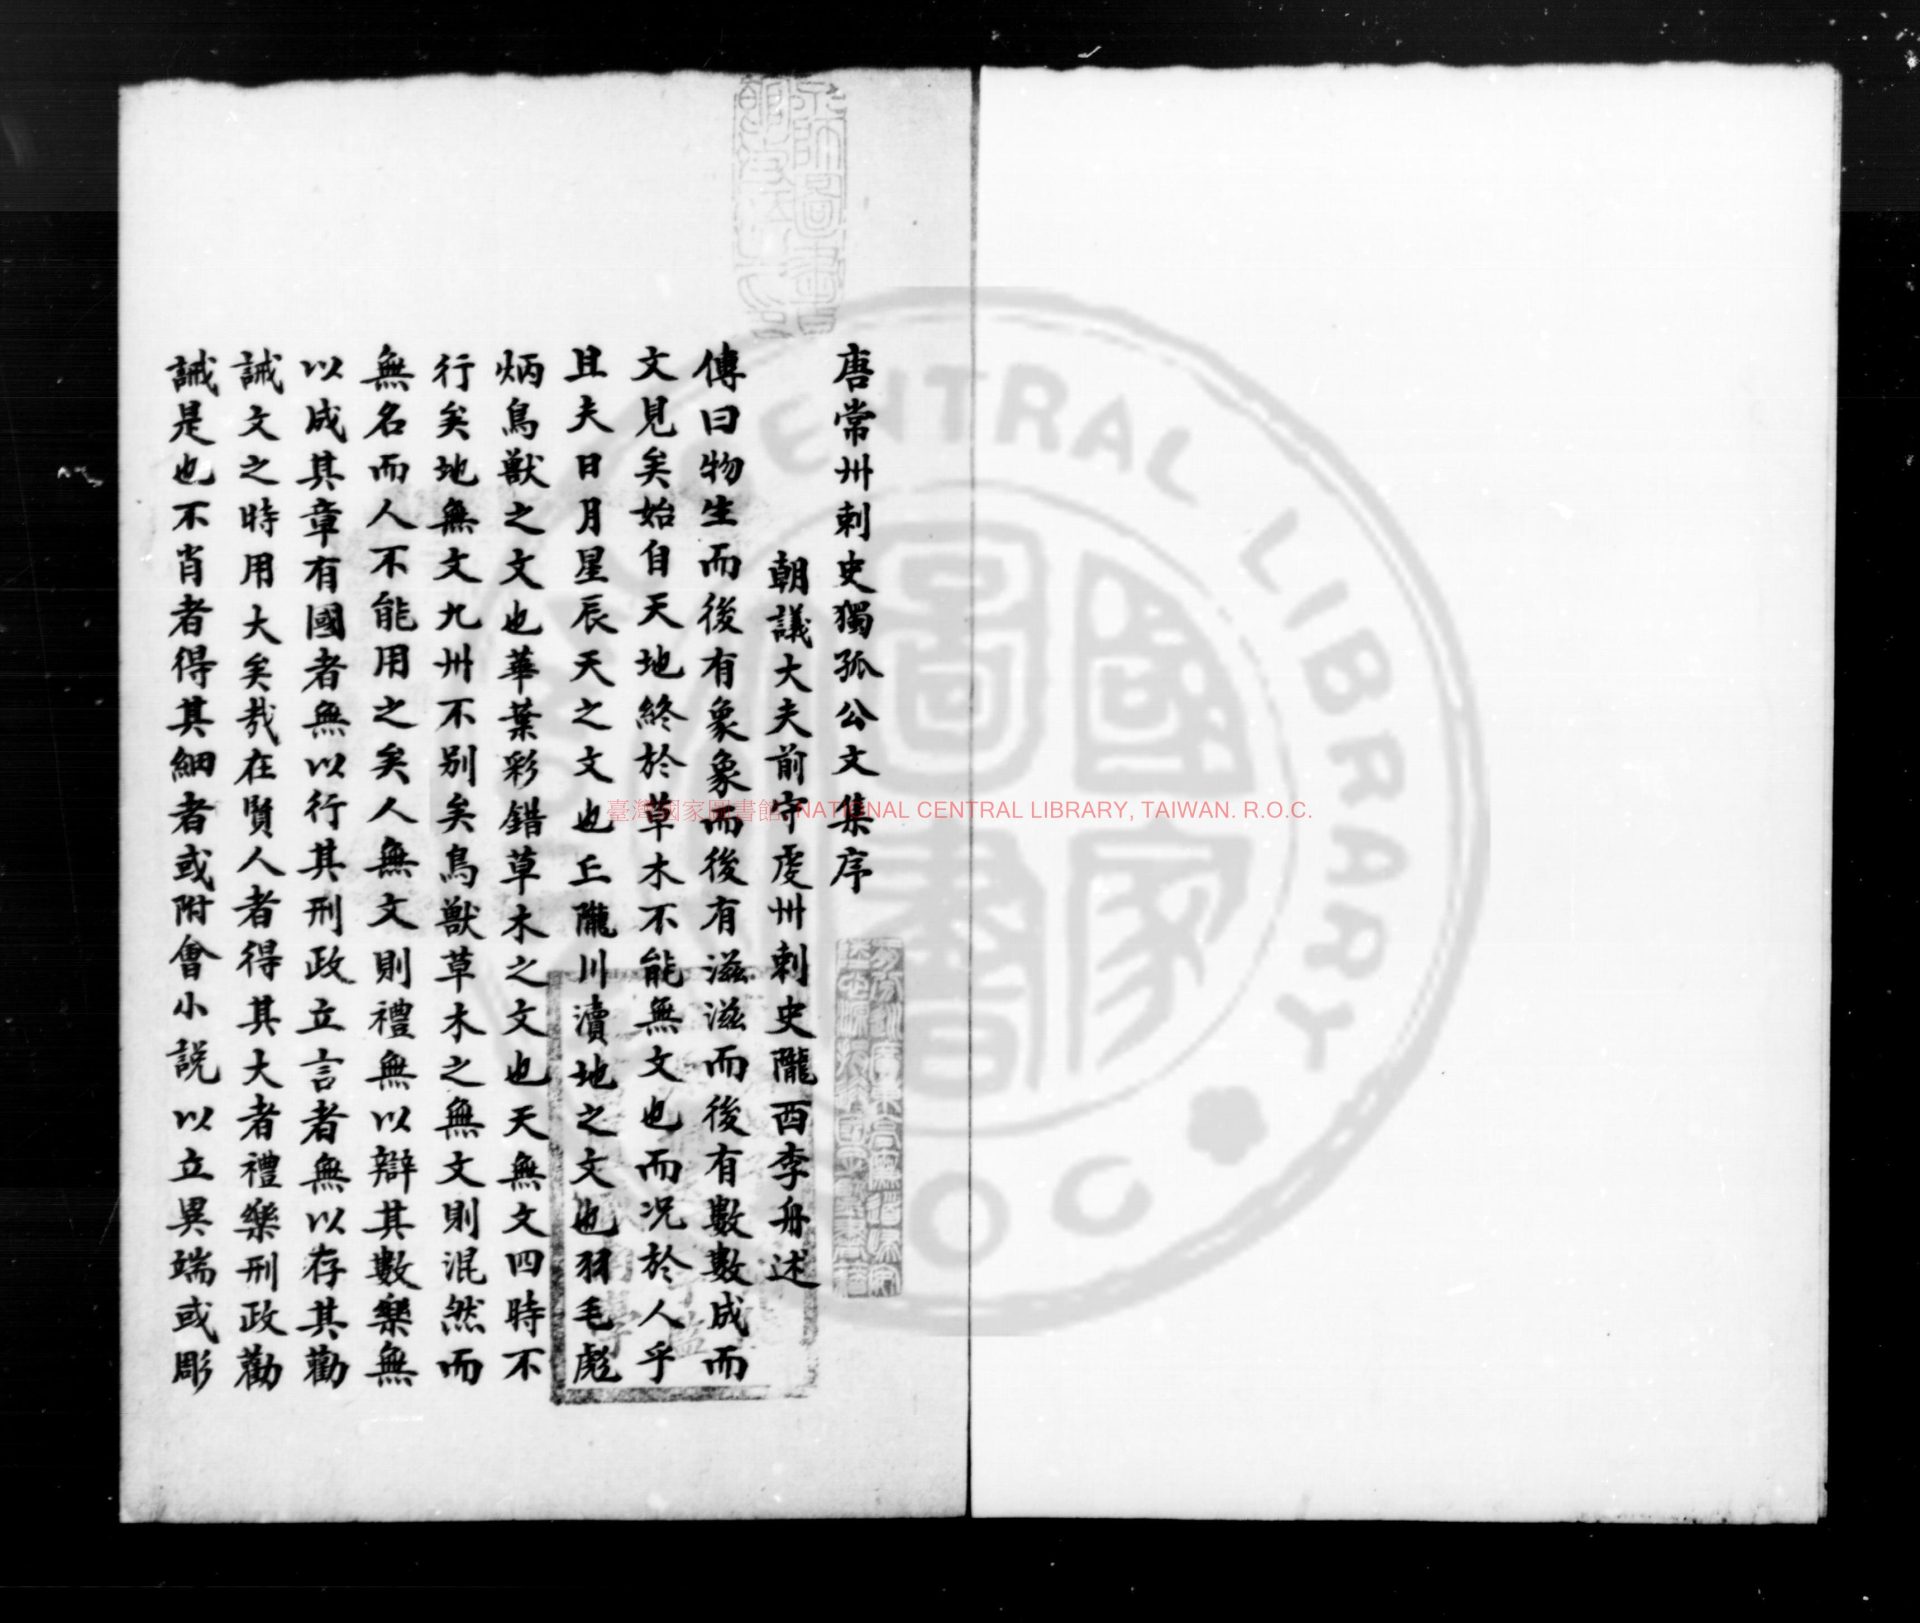 唐常州刺史獨孤公文集序
朝議大夫前守虔州刺史隴西李舟述
傳曰物生而後有象象而後有滋滋而後有數數成而
文見矣始自天地終於草木不能無文也而况於人乎
且夫日月星辰天之文也丘隴川瀆地之文也羽毛彪
炳鳥獸之文也華葉彩錯草木之文也天無文四時不
行矣地無文九州不别矣鳥獸草木之無文則混然而
無名而人不能用之矣人無文則禮無以辯其數樂無
以成其章有國者無以行其刑政立言者無以存其勸
誡文之時用大矣哉在賢人者得其大者禮樂刑政勸
誡是也不肖者得其細者或附會小説以立異端或彫
臺灣國家圖書館, NATIONAL CENTRAL LIBRARY, TAIWAN. R.O.C.
CENTRAL LIBRARY
國家圖書